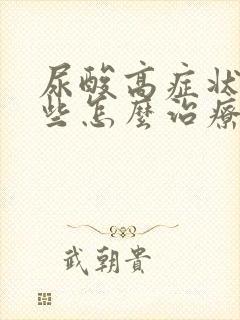 尿酸高症状
些怎麼治療
武朝貴